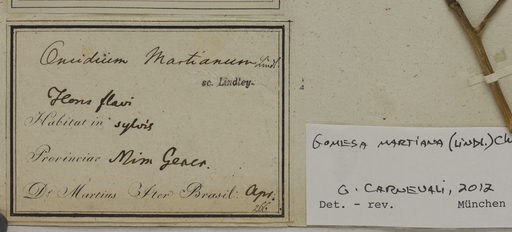 Oncidium Martianum Lindl.
sc. Lindley.
Flores flavi
Habitat in sylvis
Provinciae Min. Gener.
Dr. Martius Iter Brasil. Apr.
Gomesa martiana (Lindl.) Ch
G. Carnevali, 2012
Det. - rev. München